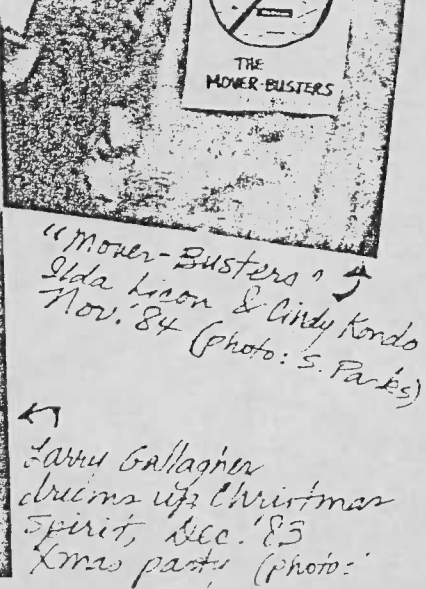 THE
MOVER-BUSTERS
"Mover-Busters"
Ilda Licon & Cindy Kondo
Nov. '84 (photo: S. Parks)
Larry Gallagher
drums up Christmas
Spirit, Dec. '83
Xmas party (photo: